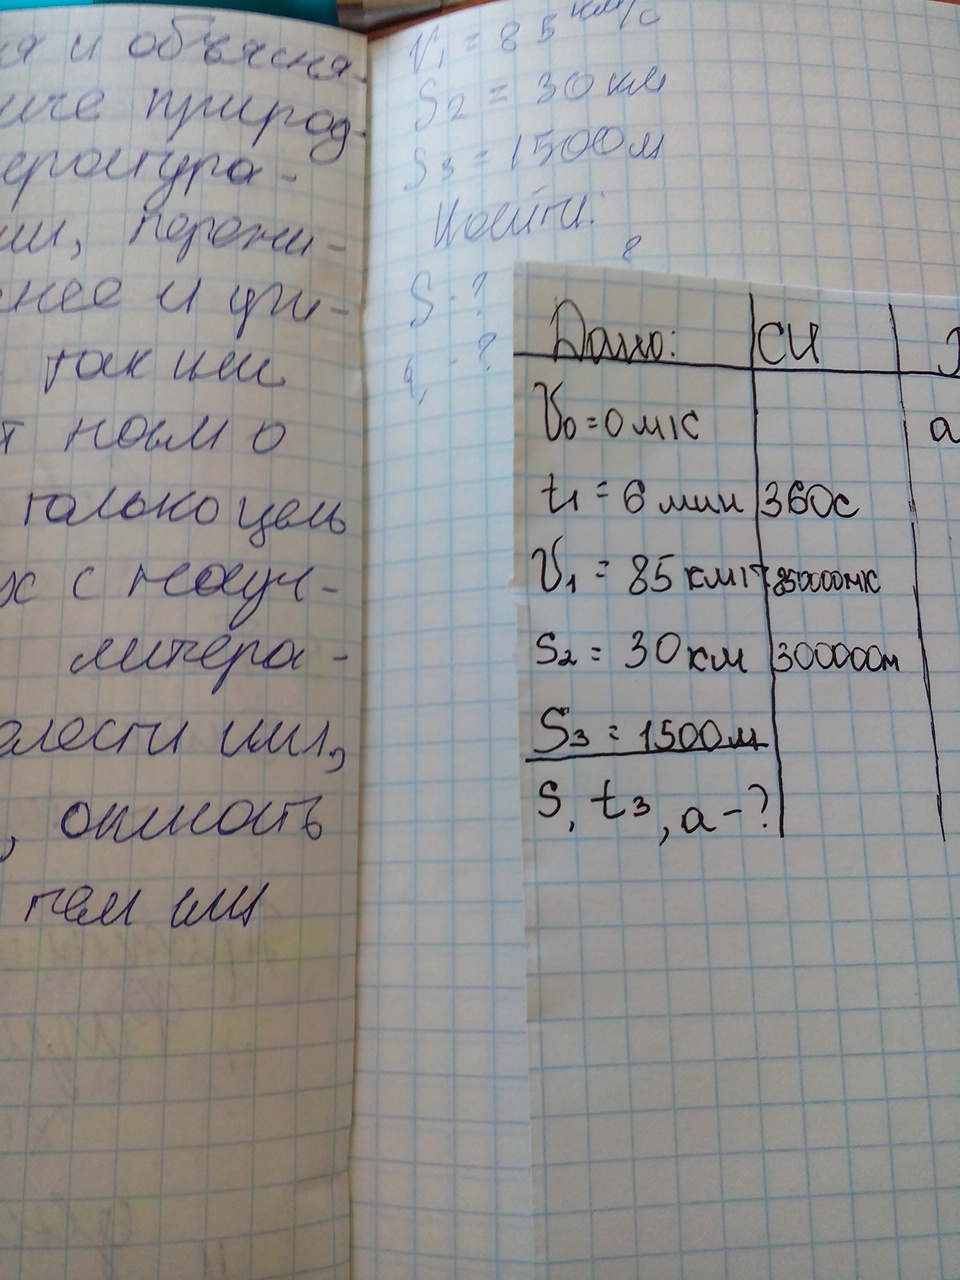 я и объясня-
ние природ-
ература-
ии, пережи-
нее и учи-
так или
ном о
только цель
х с науч-
литера-
или,
, описать
тем или
V₁ = 85 км/с
S₂ = 30 км
S₃ = 1500 м
Найти:
S - ?
- ?
Дано: СИ
V₀ = 0 м/с а
t₁ = 6 мин 360с
V₁ = 85 км/ 85000м/с
S₂ = 30 км 300000м
S₃ = 1500м
S, t₃, а - ?